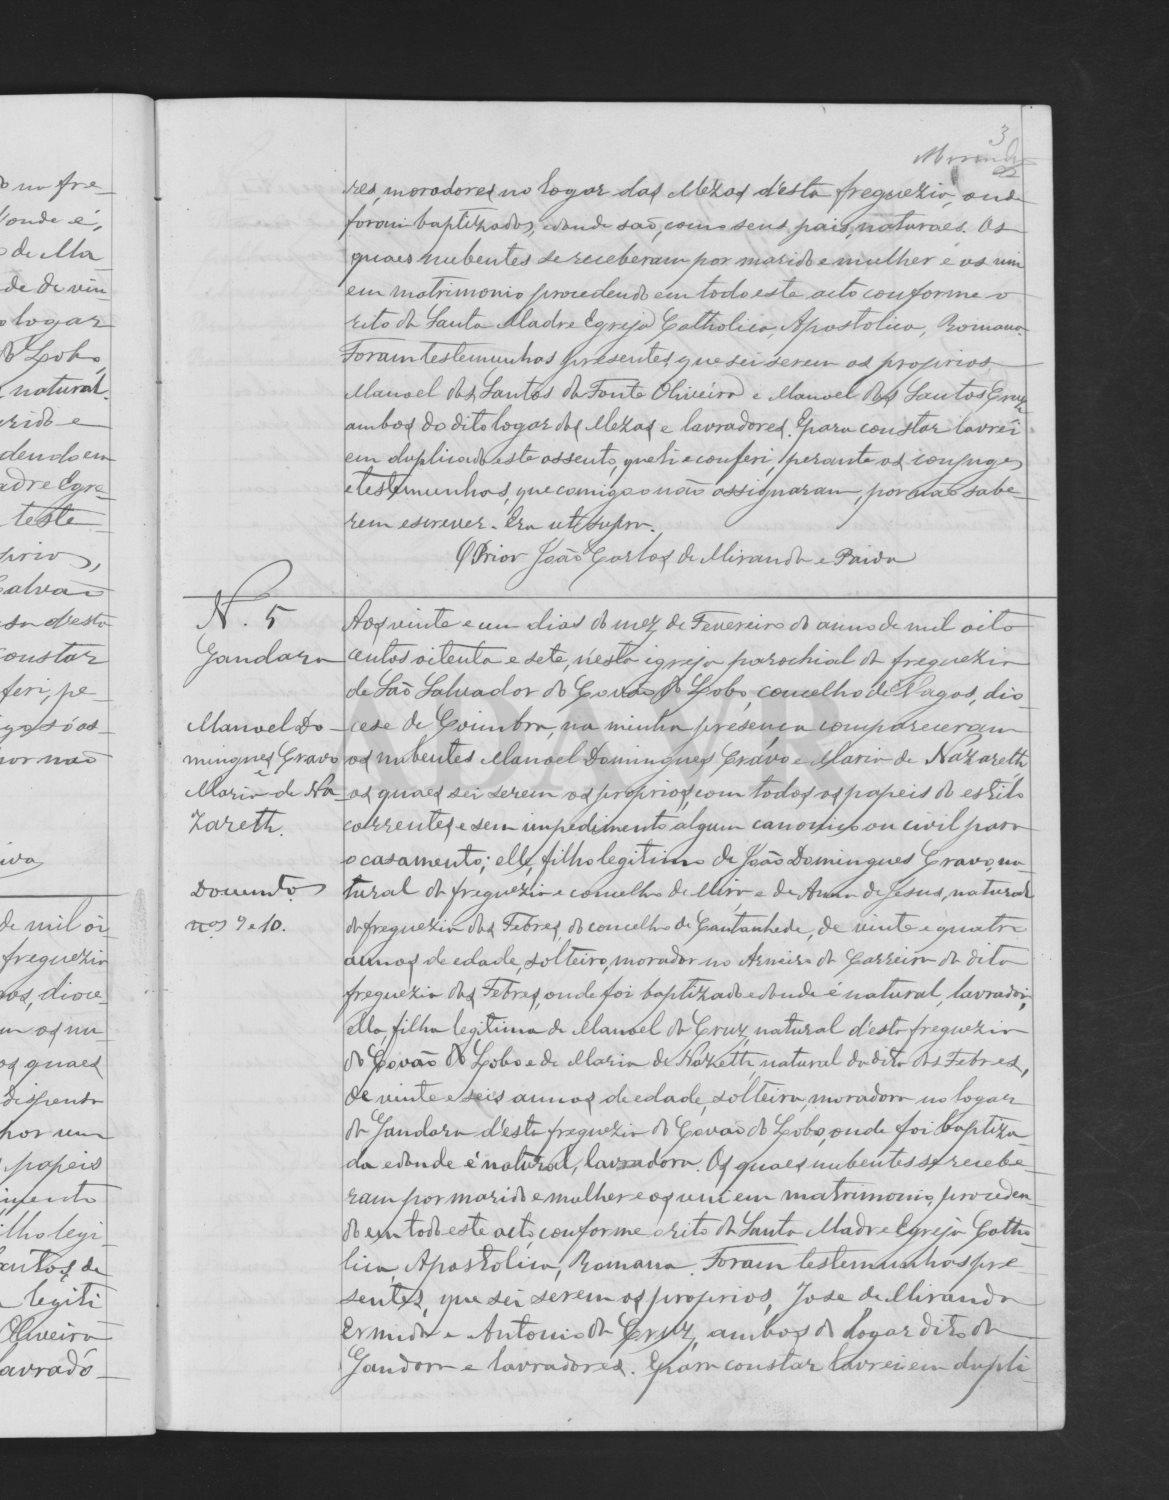 3
Miranda
res, moradores no logar das Mezas d'esta freguezia, onde
foram baptizados, e donde são, como seus pais, naturaes. Os
quaes nubentes se receberam por marido e mulher e os uni
em matrimonio procedendo em todo este acto conforme o
rito da Santa Madre Egreja Catholica, Apostolica, Romana.
Foram testemunhas presentes, que sei serem os proprios
Manoel dos Santos da Fonte Oliveira e Manoel dos Santos Cruz
ambos do dito logar das Mezas e lavradores. E para constar lavrei
em duplicado este assento, que li e conferi, perante os conjuges
e testemunhas, que comigo o não assignaram, por não sabe-
rem escrever. Era ut supra.
O Prior João Carlos de Miranda e Paiva
N. 5
Gandara
Manoel Do-
mingues Cravo
e
Maria de Na-
zareth.
Documentos
nos 9 e 10.
Aos vinte e um dias do mez de Fevereiro do anno de mil oito
centos oitenta e sete, n'esta igreja parochial da freguezia
de São Salvador do Covão do Lobo, concelho de Vagos, dio-
cese de Coimbra, na minha presença compareceram
os nubentes Manoel Domingues Cravo e Maria de Nazareth
os quaes sei serem os proprios, com todos os papeis do estilo
correntes e sem impedimento algum canonico ou civil para
o casamento; elle, filho legitimo de João Domingues Cravo, na-
tural da freguezia e concelho de Mira e de Anna de Jesus, natural
da freguezia das Febres, do concelho de Cantanhede, de vinte e quatro
annos de edade, solteiro, morador no Arneiro da Carreira da dita
freguezia das Febres, onde foi baptizado e donde é natural, lavrador;
ella, filha legitima de Manoel da Cruz, natural d'esta freguezia
do Covão do Lobo e de Maria de Nazareth natural da dita das Febres,
de vinte e seis annos de edade, solteira, moradora no logar
da Gandara d'esta freguezia do Covão do Lobo, onde foi baptiza-
da e donde é natural, lavradora. Os quaes nubentes se recebe-
ram por marido e mulher e os uni em matrimonio, proceden-
do em todo este acto, conforme o rito da Santa Madre Egreja Catho-
lica, Apostolica, Romana. Foram testemunhas pre-
sentes, que sei serem os proprios, Jose de Miranda
Ermida e Antonio da Cruz, ambos do logar dito da
Gandara e lavradores. E para constar lavrei em dupli-